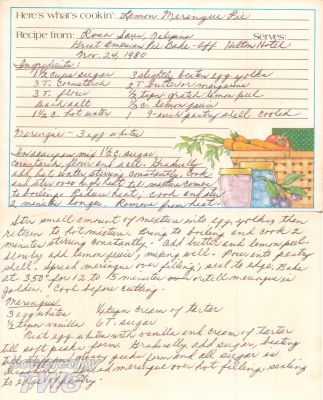 Here's what's cookin': Lemon Meringue Pie
Recipe from: Rosa Serves:
Great American Pie Bake-Off Hilton Hotel
Nov. 24, 1980
Ingredients:
1 1/2 cups sugar 3 slightly beaten egg yolks
3 T. cornstarch 2 T butter or margarine
3 T. flour 1/2 tspn grated lemon peel
Dash salt 1/3 c. lemon juice
1 1/2 c. hot water 1 9-inch pastry shell, cooled
Meringue - 3 egg white
In saucepan, mix 1 1/2 c. sugar,
cornstarch, flour and salt. Gradually
add hot water stirring constantly. Cook
and stir over high heat til mixture comes
to boiling. Reduce heat, cook and stir
2 minutes longer. Remove from heat.
Stir small amount of mixture into egg yolks, then
return to hot mixture. Bring to boiling and cook 2
minutes stirring constantly. Add butter and lemon peel.
Slowly add lemon juice, mixing well. Pour into pastry
shell. Spread meringue over filling; seal to edge. Bake
at 350° for 12 to 15 minutes or until meringue is
golden. Cool before cutting.
Meringue
3 egg white 1/4 tspn cream of tarter
1/2 tspn vanilla 6 T. sugar
Beat egg whites with vanilla and cream of tarter
till soft peaks form. Gradually add sugar, beating
till stiff and glossy peaks form and all sugar is
dissolved. Spread meringue over hot filling, sealing
to edge of pastry.